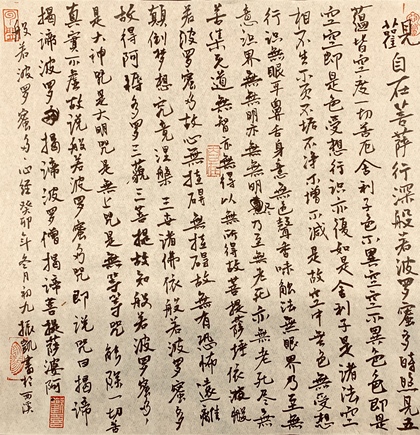 觀自在菩薩行深般若波罗蜜多時照見五
蕴皆空度一切苦厄舍利子色不異空空不異色色即是
空空即是色受想行识亦復如是舍利子是诸法空
相不生不灭不垢不净不增不减是故空中無色無受想
行识無眼耳鼻舌身意無色聲香味触法無眼界乃至無
意识界無無明亦無無明尽乃至無老死亦無老死尽無
苦集灭道無智亦無得以無所得故菩提薩埵依般
若波罗蜜多故心無挂碍無挂碍故無有恐怖遠離
颠倒梦想究竟涅槃三世诸佛依般若波罗蜜多
故得阿耨多罗三藐三菩提故知般若波罗蜜多
是大神咒是大明咒是無上咒是無等等咒能除一切苦
真實不虚故说般若波罗蜜多咒即说咒曰揭谛
揭谛波罗揭谛波罗僧揭谛菩提薩婆诃
般若波罗蜜多心经癸卯年冬月初九振凯書於西溪